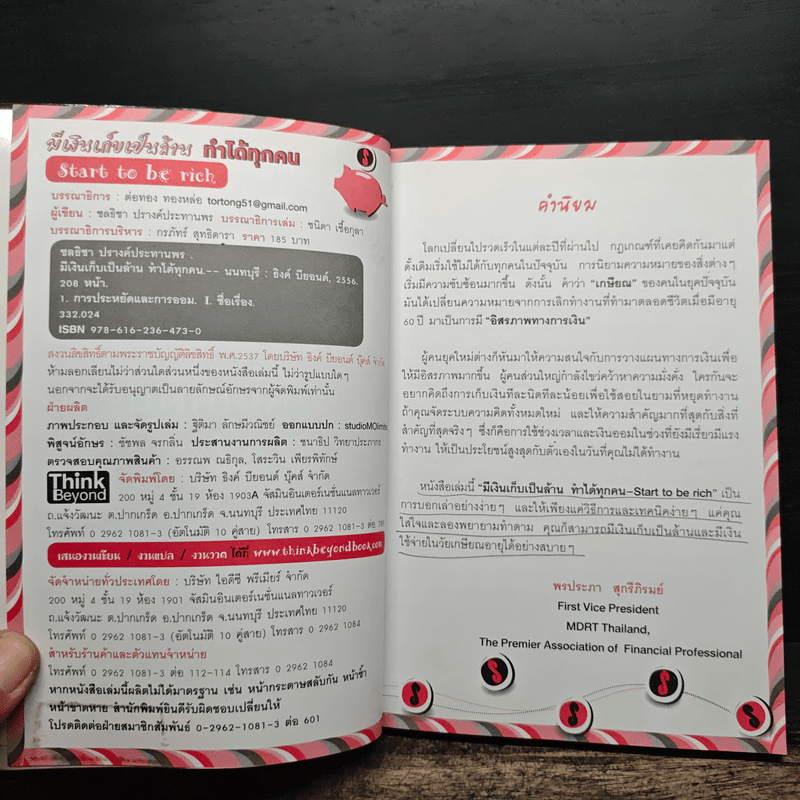 มีเงินเก็บเป็นล้าน ทำได้ทุกคน
Start to be rich
บรรณาธิการ : ต่อทอง ทองหล่อ tortong51@gmail.com
ผู้เขียน : ชลธิชา ปรางค์ประทานพร บรรณาธิการเล่ม : ชนิดา เชื้อกุลา
บรรณาธิการบริหาร : กรภัทร์ สุทธิดารา ราคา 185 บาท
ชลธิชา ปรางค์ประทานพร.
มีเงินเก็บเป็นล้าน ทำได้ทุกคน.-- นนทบุรี : ธิงค์ บียอนด์, 2556.
208 หน้า.
1. การประหยัดและการออม. I. ชื่อเรื่อง.
332.024
ISBN 978-616-236-473-0
สงวนลิขสิทธิ์ตามพระราชบัญญัติลิขสิทธิ์ พ.ศ.2537 โดยบริษัท ธิงค์ บียอนด์ บุ๊คส์ จำกัด
ห้ามลอกเลียนไม่ว่าส่วนใดส่วนหนึ่งของหนังสือเล่มนี้ ไม่ว่ารูปแบบใดๆ
นอกจากจะได้รับอนุญาตเป็นลายลักษณ์อักษรจากผู้จัดพิมพ์เท่านั้น
ฝ่ายผลิต
ภาพประกอบ และจัดรูปเล่ม : ฐิติมา ลักษมีวณิชย์ ออกแบบปก : studioMOlimited
พิสูจน์อักษร : ชัชพล จรกลิ่น ประสานงานการผลิต : ชนาธิป วิทยาประภากร
ตรวจสอบคุณภาพสินค้า : อรรณพ ณธิกุล, โสระวิน เพียรพิทักษ์
Think Beyond จัดพิมพ์โดย : บริษัท ธิงค์ บียอนด์ บุ๊คส์ จำกัด
200 หมู่ 4 ชั้น 19 ห้อง 1903A จัสมินอินเตอร์เนชั่นแนลทาวเวอร์
ถ.แจ้งวัฒนะ ต.ปากเกร็ด อ.ปากเกร็ด จ.นนทบุรี ประเทศไทย 11120
โทรศัพท์ 0 2962 1081-3 (อัตโนมัติ 10 คู่สาย) โทรสาร 0 2962 1084 ต่อ
เสนองานเขียน / งานแปล / งานวาด ได้ที่ www.thinkbeyondbook.com
จัดจำหน่ายทั่วประเทศโดย : บริษัท ไอดีซี พรีเมียร์ จำกัด
200 หมู่ 4 ชั้น 19 ห้อง 1901 จัสมินอินเตอร์เนชั่นแนลทาวเวอร์
ถ.แจ้งวัฒนะ ต.ปากเกร็ด อ.ปากเกร็ด จ.นนทบุรี ประเทศไทย 11120
โทรศัพท์ 0 2962 1081-3 (อัตโนมัติ 10 คู่สาย) โทรสาร 0 2962 1084
สำหรับร้านค้าและตัวแทนจำหน่าย
โทรศัพท์ 0 2962 1081-3 ต่อ 112-114 โทรสาร 0 2962 1084
หากหนังสือเล่มนี้ผลิตไม่ได้มาตรฐาน เช่น หน้ากระดาษสลับกัน หน้าซ้ำ
หน้าขาดหาย สำนักพิมพ์ยินดีรับผิดชอบเปลี่ยนให้
โปรดติดต่อฝ่ายสมาชิกสัมพันธ์ 0-2962-1081-3 ต่อ 601
คำนิยม
โลกเปลี่ยนไปรวดเร็วในแต่ละปีที่ผ่านไป กฎเกณฑ์ที่เคยคิดกันมาแต่
ดั้งเดิมเริ่มใช้ไม่ได้กับทุกคนในปัจจุบัน การนิยามความหมายของสิ่งต่างๆ
เริ่มมีความซับซ้อนมากขึ้น ดังนั้น คำว่า "เกษียณ" ของคนในยุคปัจจุบัน
มันได้เปลี่ยนความหมายจากการเลิกทำงานที่ทำมาตลอดชีวิตเมื่อมีอายุ
60 ปี มาเป็นการมี "อิสรภาพทางการเงิน"
ผู้คนยุคใหม่ต่างก็หันมาให้ความสนใจกับการวางแผนทางการเงินเพื่อ
ให้มีอิสรภาพมากขึ้น ผู้คนส่วนใหญ่กำลังไขว่คว้าหาความมั่งคั่ง ใครกันจะ
อยากคิดถึงการเก็บเงินทีละนิดทีละน้อยเพื่อใช้สอยในยามที่หยุดทำงาน
ถ้าคุณจัดระบบความคิดทั้งหมดใหม่ และให้ความสำคัญมากที่สุดกับสิ่งที่
สำคัญที่สุดจริงๆ ซึ่งก็คือการใช้ช่วงเวลาและเงินออมในช่วงที่ยังมีเรี่ยวมีแรง
ทำงาน ให้เป็นประโยชน์สูงสุดกับตัวเองในวันที่คุณไม่ได้ทำงาน
หนังสือเล่มนี้ "มีเงินเก็บเป็นล้าน ทำได้ทุกคน-Start to be rich" เป็น
การบอกเล่าอย่างง่ายๆ และให้เพียงแค่วิธีการและเทคนิคง่ายๆ แค่คุณ
ใส่ใจและลองพยายามทำตาม คุณก็สามารถมีเงินเก็บเป็นล้านและมีเงิน
ใช้จ่ายในวัยเกษียณอายุได้อย่างสบายๆ
พรประภา สุกรีภิรมย์
First Vice President
MDRT Thailand,
The Premier Association of Financial Professional